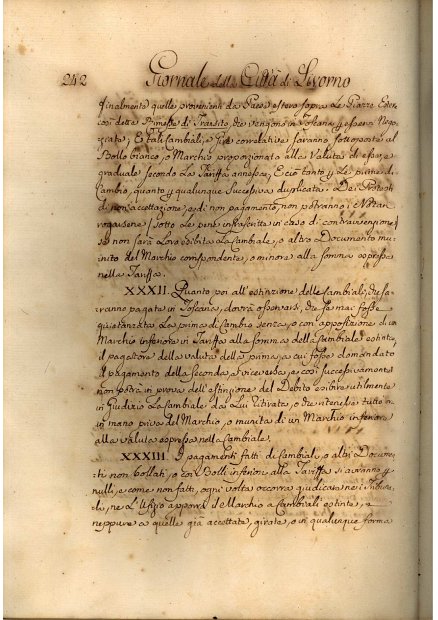 242 Giornale della Città di Livorno
finalmente quelle provenienti da Paesi esteri sopra Le Piazze Este
così dette Rimesse di Transito che vengono in Toscana p esservi Nego
ziate; E tali Cambiali, e Gire correlative saranno sottoposte al
Bollo bianco, o Marchio proporzionato alla Valuta di esse, e
graduale secondo La Tariffa annessa, E ciò tanto p Le prime di
Cambio, quanto p qualunque Successiva duplicata. Dei Protesti
di non accettazione, e di non pagamento, non potranno i Notari
rogarsene (sotto Le pene infrascritte in caso di contravenzione)
se non sarà Loro esibita La Cambiale, o altro Documento mu=
nito del Marchio corrispondente, o minore alla somma espressa
nella Tariffa.
XXXII. Quanto poi all'estinzione delle Cambiali, che sa=
ranno pagate in Toscana, dovrà osservarsi, che se mai fosse
quietanzata La prima di Cambio senza, o con apposizione di un
Marchio inferiore in Tariffa alla somma della Cambiale estinta,
il pagatore della valuta della prima, a cui fosse domandato
il pagamento della seconda, o viceversa, e così successivamente
non potrà in prova dell'estinzione del Debito esibire utilmente
in Giudizio La Cambiale da Lui ritirata, o che ritenesse tuttora
in mano priva del Marchio, o munita di un Marchio inferiore
alla valuta espressa nella Cambiale.
XXXIII. I pagamenti fatti di Cambiali, o altri Docume=
ti non bollati, o con Bolli inferiori alla Tariffa si avranno p
nulli, e come non fatti, ogni volta occorra giudicarne i Tribuna
li, ne L'Ufizio apporrà il Marchio a Cambiali estinte, e
neppure a quelle già accettate, girate, o in qualunque forma